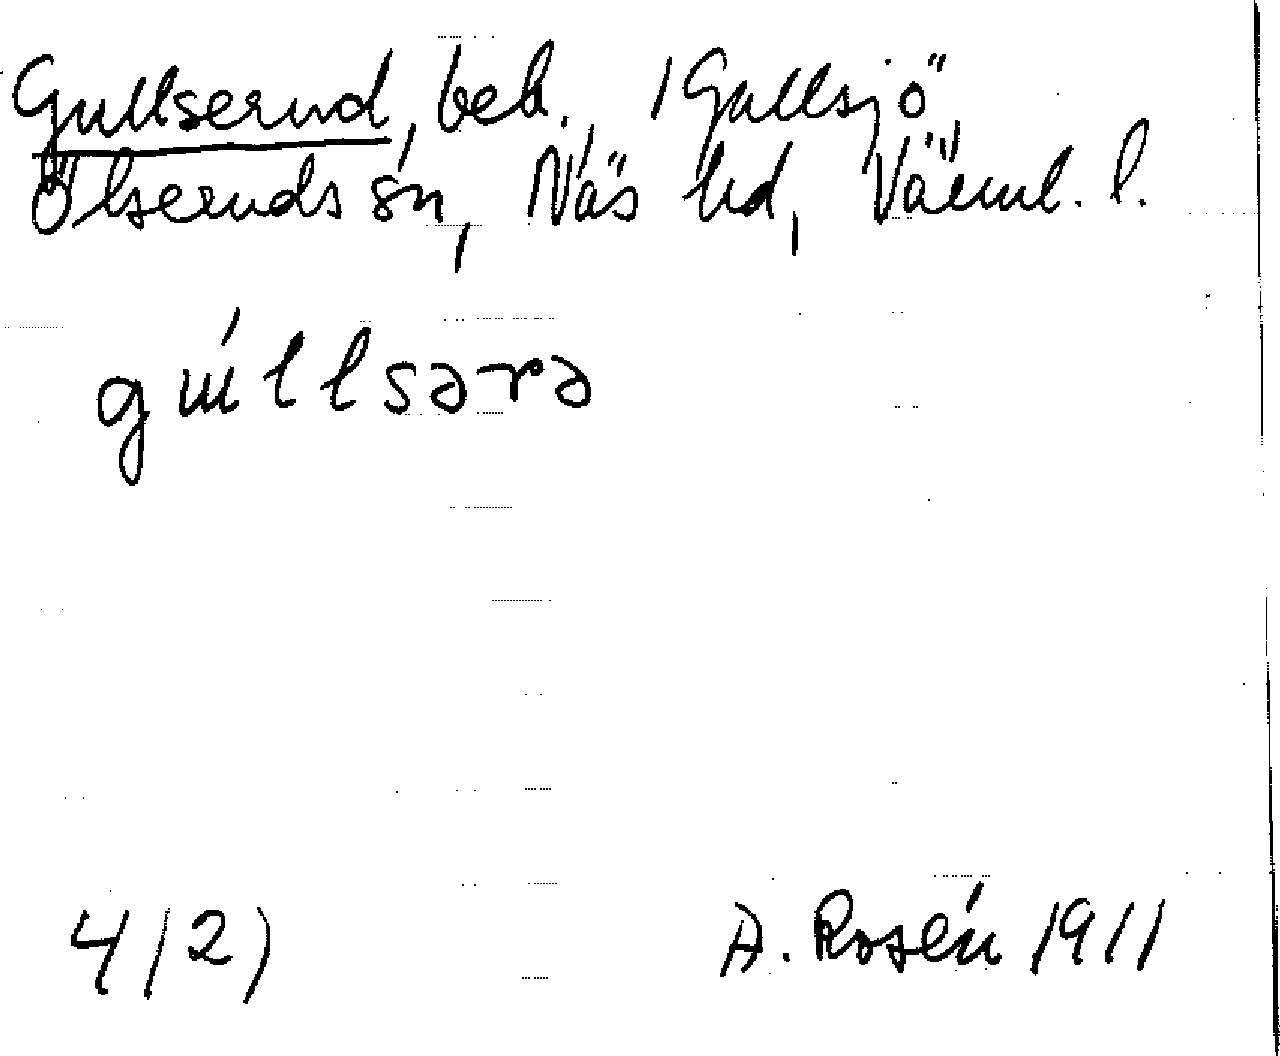 Gullserud, beb. / Gullsjö
Ölseruds sn, Näs hd, Värml. l.
gúllsərə
4/2)
A. Rosén 1911